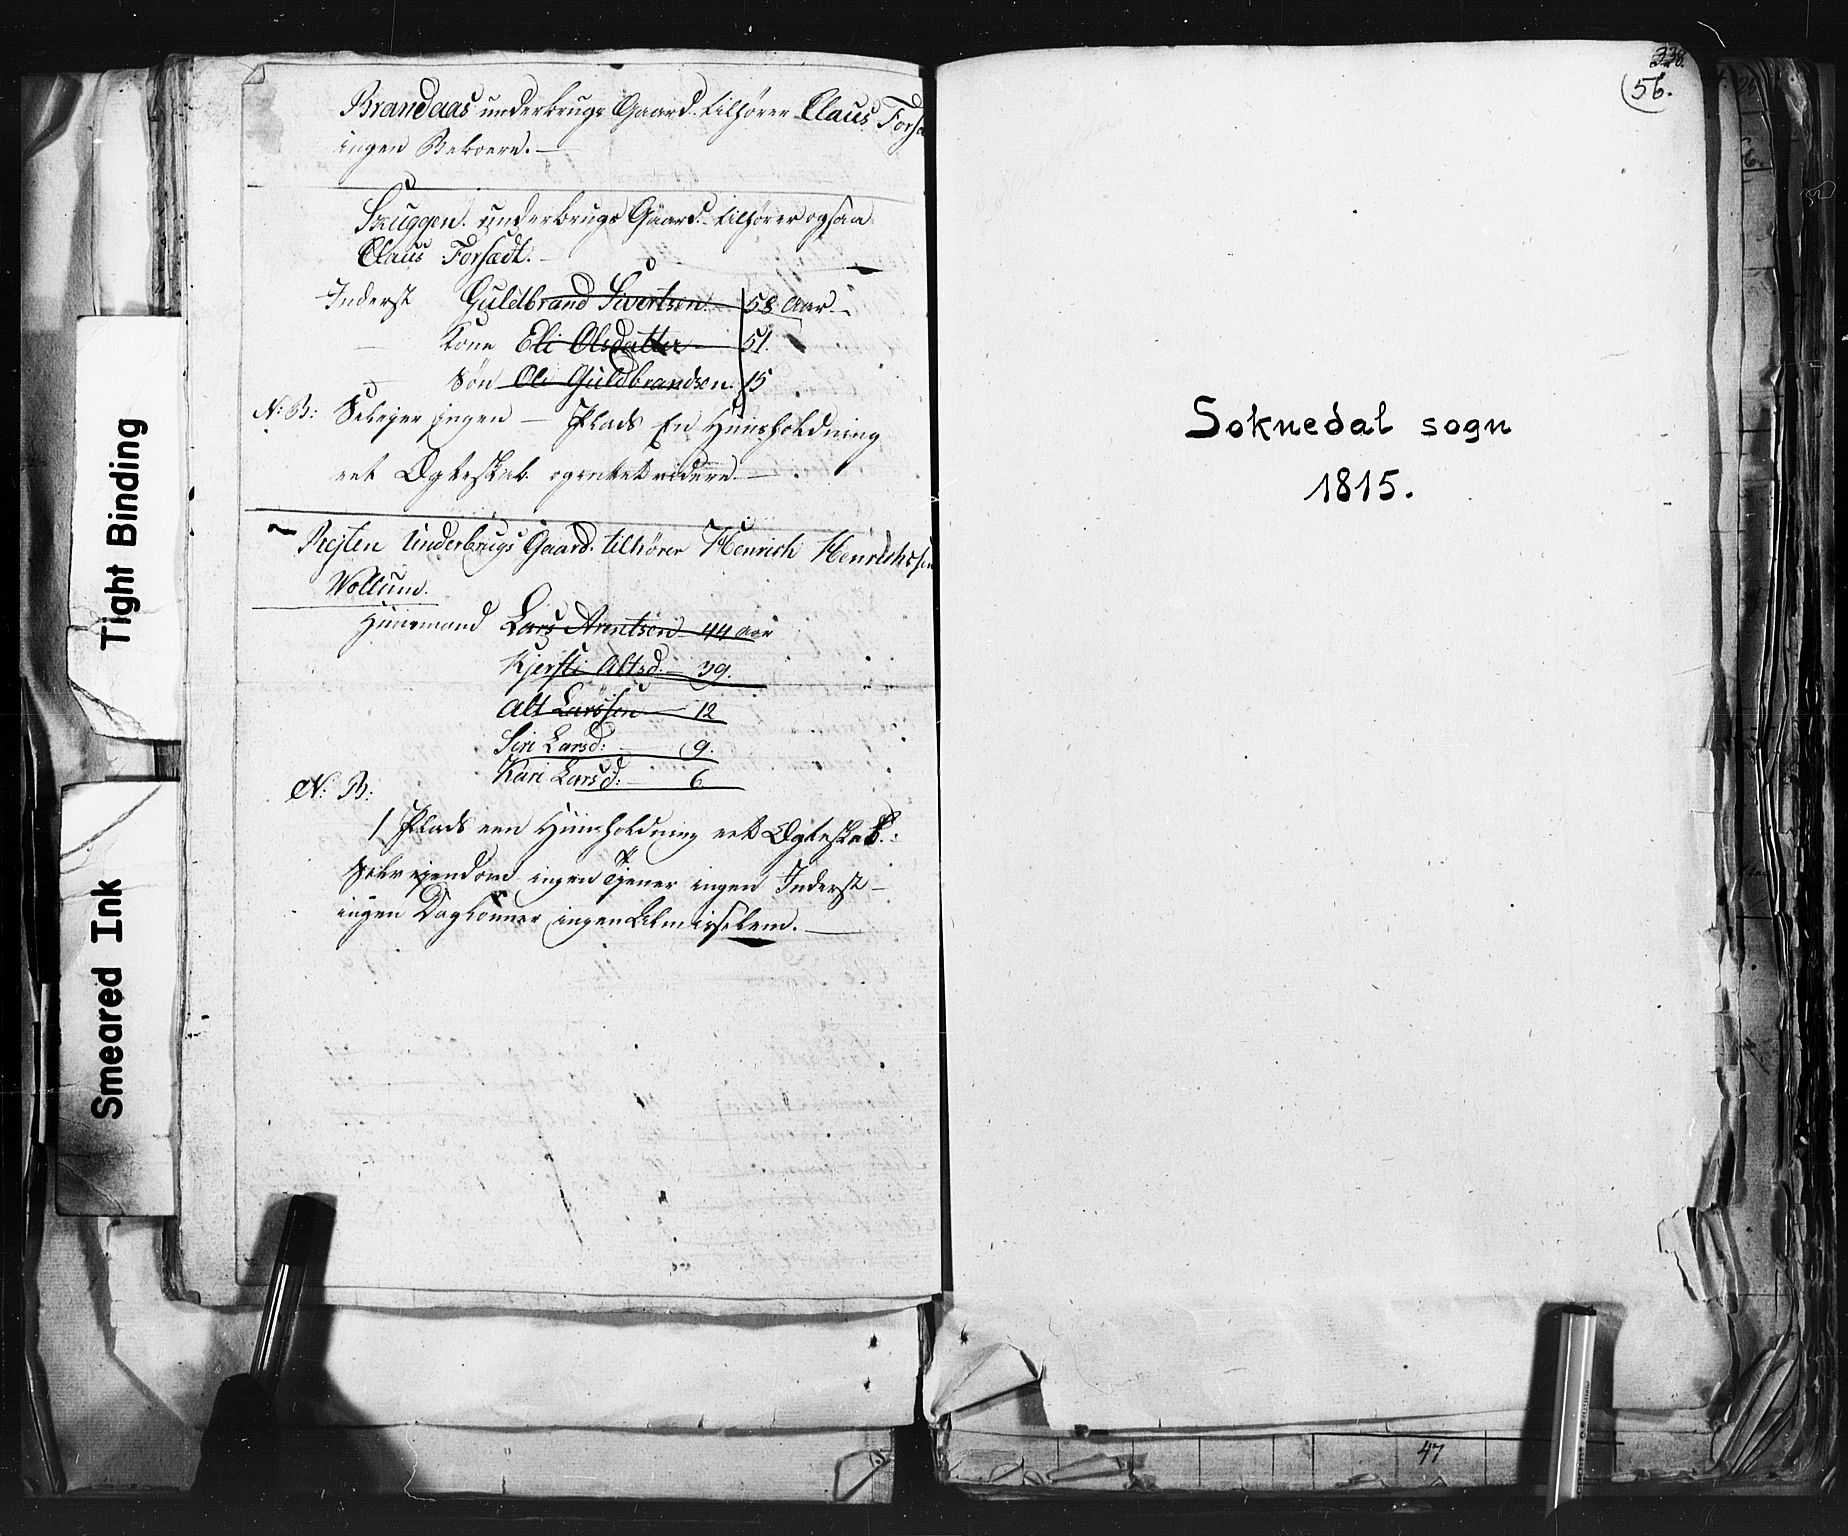 Brandaas underbrugs Gaard. tilhører Claus Forsæ
ingen Beboere. —
Skuggen. underbrugs Gaard. tilhører ogsaa
Claus Forsædt. —
Inderst Guldbrand Sivertsen 58 Aar —
— Kone Eli Olsdatter — 51.
— Søn Ole Guldbrandsen. 15
N: B: Seleyer ingen — 1 Plads En Huusholdning
eet Ægteskab. og intet videre —
Rejten Underbrugs Gaard. tilhører Henrich Henrichssen
Wollum.
Huusmand Lars Arntsen 44 Aar
Kjersti Altsd. — 39.
Alt Larssen — 12
Siri Larsd: — 9.
Kari Larsd: — 6
N: B:
1 Plads een Huusholdning eet Ægteskab:
ingen Tjener ingen Inderst —
ingen Daglønner ingen Almisselem. —
Tight Binding
Smeared Ink
338.
56.
Soknedal sogn
1815.
47